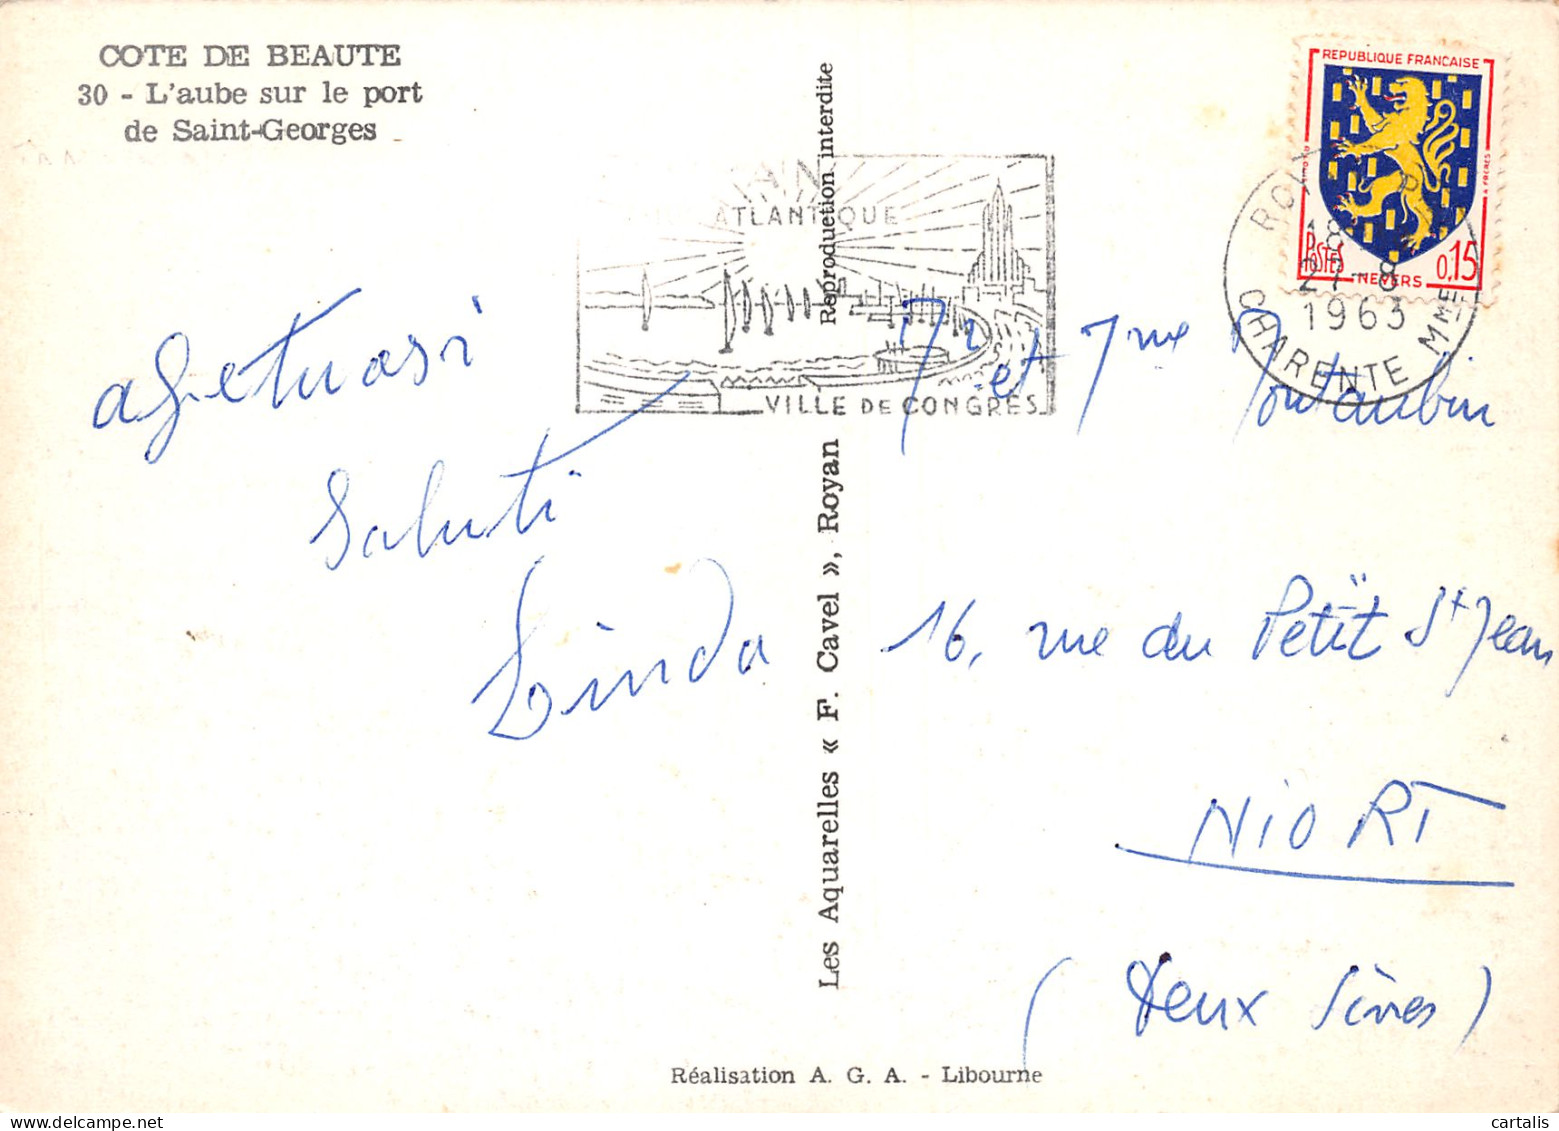 COTE DE BEAUTE
30 - L'aube sur le port
de Saint-Georges
REPUBLIQUE FRANCAISE
POSTES
0,15
NEVERS
1963
CHARENTE MME
ATLANTIQUE
VILLE DE CONGRES
affetuosi
saluti
Linda
Mr et Mme Montaubin
16, rue du Petit St Jean
NIORT
(Deux Sèvres)
Les Aquarelles « F. Cavel », Royan Reproduction interdite
Réalisation A. G. A. - Libourne
cartalis